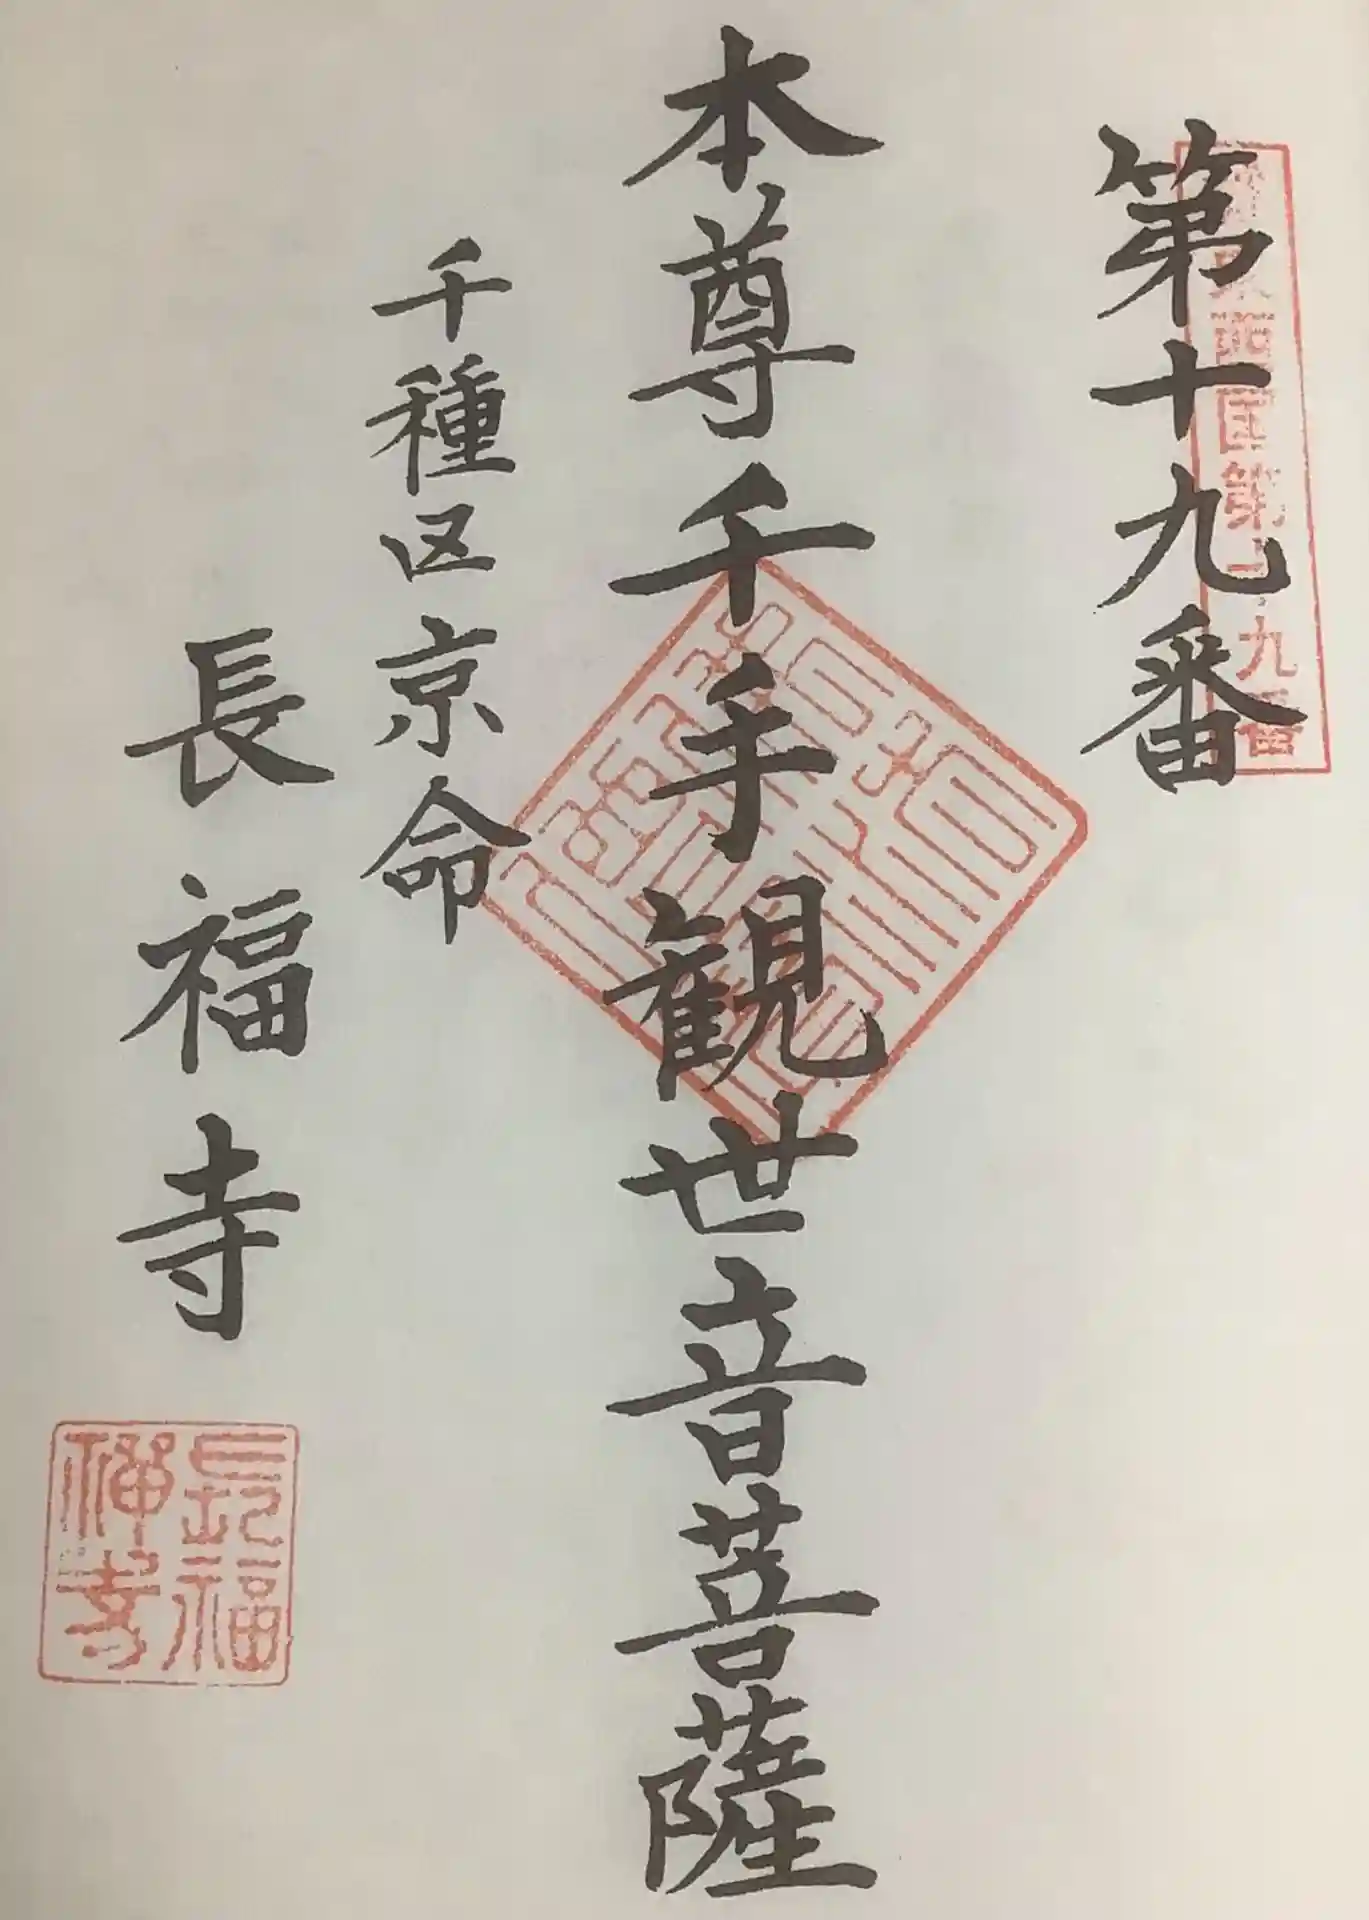 第十九番
西国第十九番
本尊千手観世音菩薩
千種区京命
長福寺
長福
禅寺